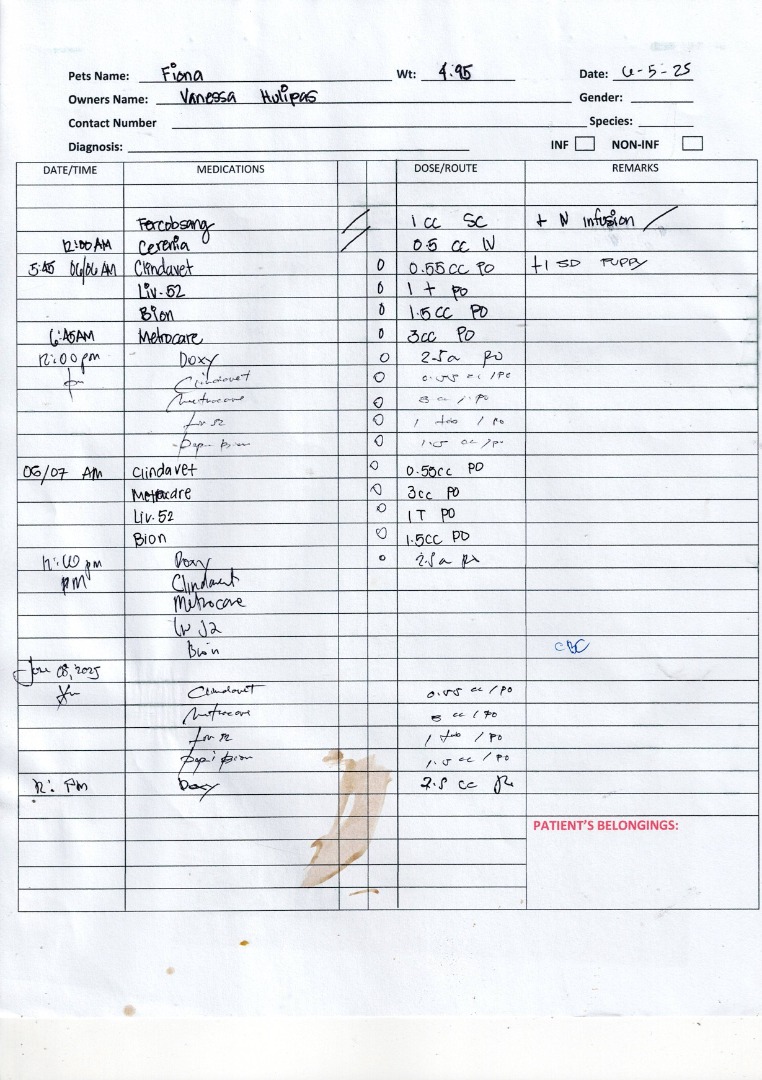 Pets Name: Fiona Wt: 4.95 Date: 6-5-25
Owners Name: Vanessa Hulipas Gender:
Contact Number Species:
Diagnosis: INF NON-INF
DATE/TIME MEDICATIONS DOSE/ROUTE REMARKS
Fercobsang 1 cc SC + N Infusion /
12:00AM Cerenia 0.5 cc IV
5:45 06/06 AM Clindavet 0 0.55cc PO +1 SD PUPPY
Liv.52 0 1 t PO
Bion 0 1.5cc PO
6:45AM Metrocare 0 3cc PO
12:00pm Doxy 0 2.5cc PO
Clindavet 0 0.55 cc /PO
Metrocare 0 3 cc / PO
Liv 52 0 1 tab / PO
Papi Bion 0 1.5 cc /PO
06/07 AM Clindavet 0 0.55cc PO
Metrocare 0 3cc PO
Liv.52 0 1T PO
Bion 0 1.5cc PO
12:00 pm Doxy 0 2.5cc
PM Clindavet
Metrocare
Liv 52
Bion CBC
June 08, 2025
Clindavet 0.55 cc / PO
Metrocare 3 cc / PO
Liv 52 1 tab / PO
Papi Bion 1.5 cc / PO
12: PM Doxy 2.5 cc
PATIENT'S BELONGINGS: